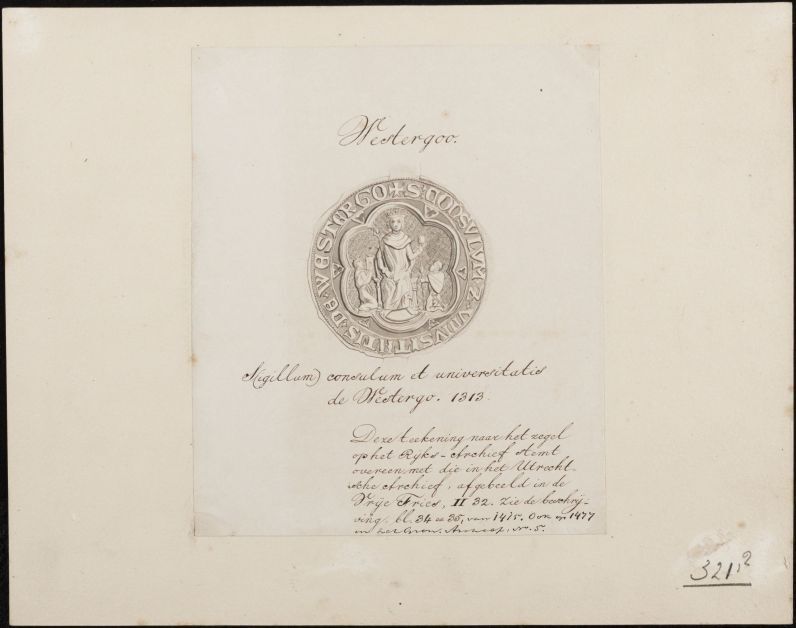 Westergoo.
+ S: CONSVLVM. Z. VNVSITATIS. DE. WESTERGO
S(igillum) consulum et universitatis
de Westergo. 1313.
Deze teekening naar het zegel
op het Ryks-Archief stemt
overeen met die in het Utrecht-
sche Archief, afgebeeld in de
Vrije Fries, II 32. Zie de beschrij-
ving, bl. 34 en 35, van 1475. Ook op 1477
in het Gron. no. 5.
321,2